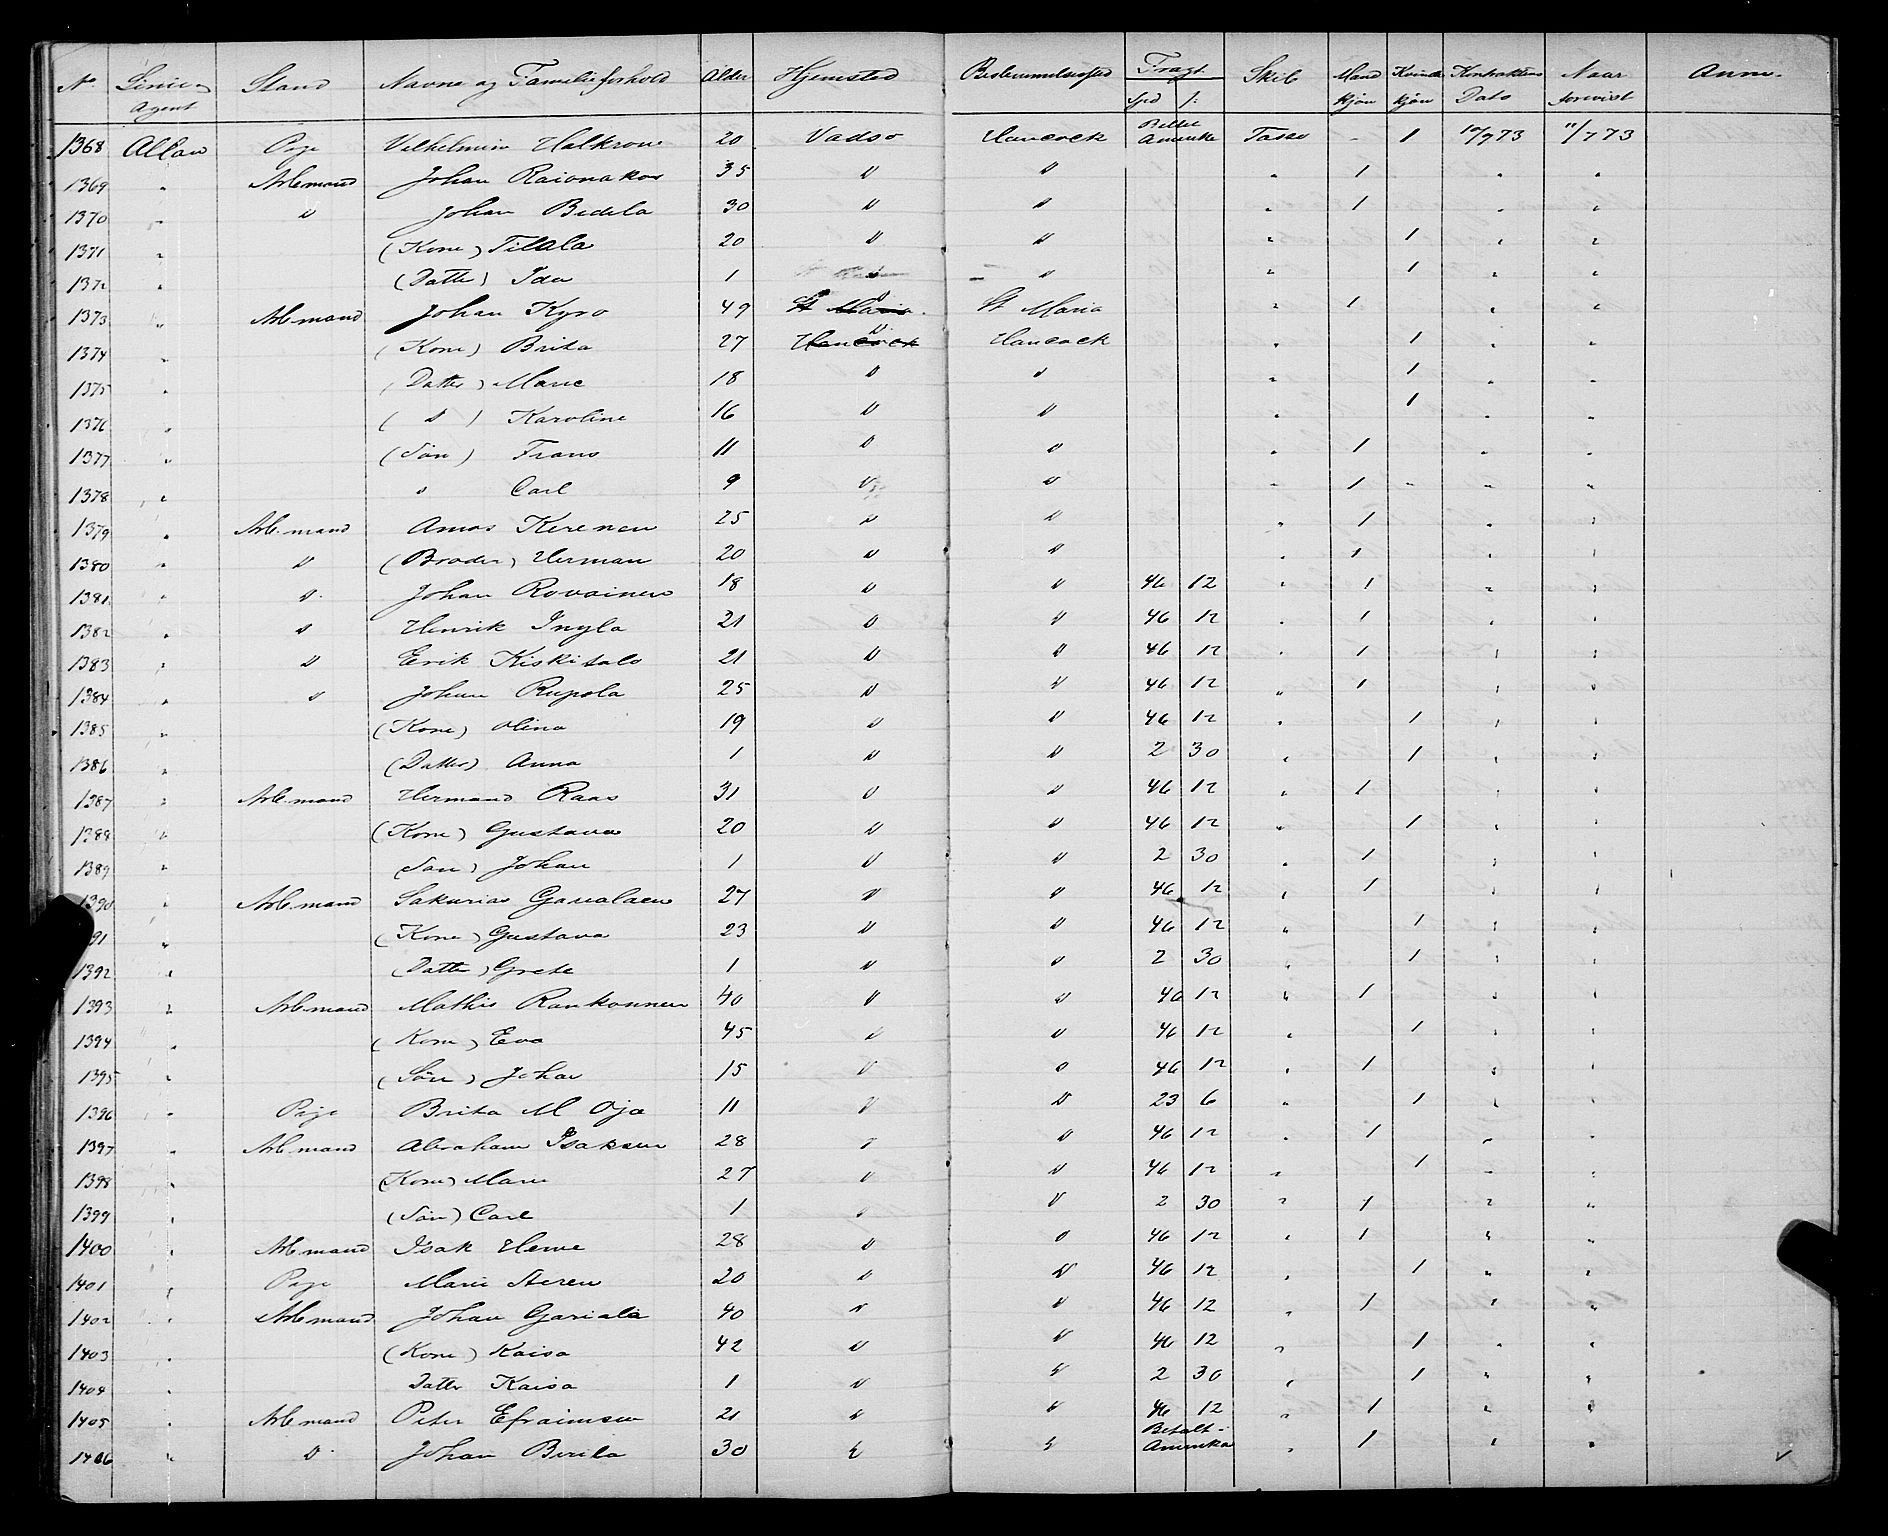 No. Linie og Agent Stand Navne og Familieforhold Alder Hjemsted Bestemmelsessted Fragt Spd ſ: Skib Mand kjøn Kvinde kjøn Kontraktens Dato Naar forevist Anm.
1368 Allan Pige Vilhelmine Halkron 20 Vadsø Hancock Billet Amerika Tasso - 1 10/7 73 11/7 73
1369 " Arb.mand Johan Raionakos 35 " " " 1 " "
1370 " " Johan Bedila 30 " " " 1 " "
1371 " (Kone) Titala 20 " " " 1 " "
1372 " (Datter) Ida 1 " " " 1 " "
1373 " Arb mand Johan Kyro 49 St Maria " St Maria " 1 " "
1374 " (Kone) Brita 27 Hancock " Hancock " 1 " "
1375 " (Datter) Marie 18 " " " 1 " "
1376 " ( " ) Karoline 16 " " " 1 " "
1377 " (Søn) Frans 11 " " " 1 " "
1378 " " Carl 9 " " " 1 " " "
1379 " Arb.mand Amos Kerenen 25 " " " 1 " "
1380 " " (Broder) Herman 20 " " " 1 " "
1381 " " Johan Rovainen 18 " " 46 12 " 1 " "
1382 " " Henrik Inyla 21 " " 46 12 " 1 " "
1383 " " Erik Kiskitalo 21 " " 46 12 " 1 " "
1384 " " Johan Rupola 25 " " 46 12 " 1 " "
1385 " (Kone) Olina 19 " " 46 12 " 1 " "
1386 " (Datter) Anna 1 " " 2 30 " 1 " "
1387 " Arb.mand Hermand Raas 31 " " 46 12 " 1 " "
1388 " (Kone) Gustava 20 " " 46 12 " 1 " "
1389 " (Søn) Johan 1 " " 2 30 " 1 " "
1390 " Arb.mand Sakarias 27 " " 46 12 " 1 " "
91 " (Kone) Gustava 23 " " 46 12 " 1 " "
1392 " (Datter) Grete 1 " " 2 30 " 1 " "
1393 " Arb mand Mathis Rankonnen 40 " " 46 12 " 1 " "
1394 " (Kone) Eva 45 " " 46 12 " 1 " "
1395 " (Søn) Johan 15 " " 46 12 " 1 " "
1396 " Pige Brita M Oja 11 " " 23 6 " 1 " "
1397 " Arb mand Abraham Isaksen 28 " " 46 12 " 1 " "
1398 " (Kone) Marie 27 " " 46 12 " 1 " "
1399 " (Søn) Carl 1 " " 2 30 " 1 " "
1400 " Arb mand Isak 28 " " 46 12 " 1 " "
1401 " Pige Marie 20 " " 46 12 " 1 " "
1402 " Arb mand Johan Gariala 40 " " 46 12 " 1 " "
1403 " (Kone) Kaisa 42 " " 46 12 " 1 " "
1404 " Datter Kaisa 1 " " 2 30 " 1 " "
1405 " Arb mand Peter Efraimsen 21 " " 46 12 " 1 " "
1406 " " Johan Berila 30 " " Betalt Amerika " 1 " "